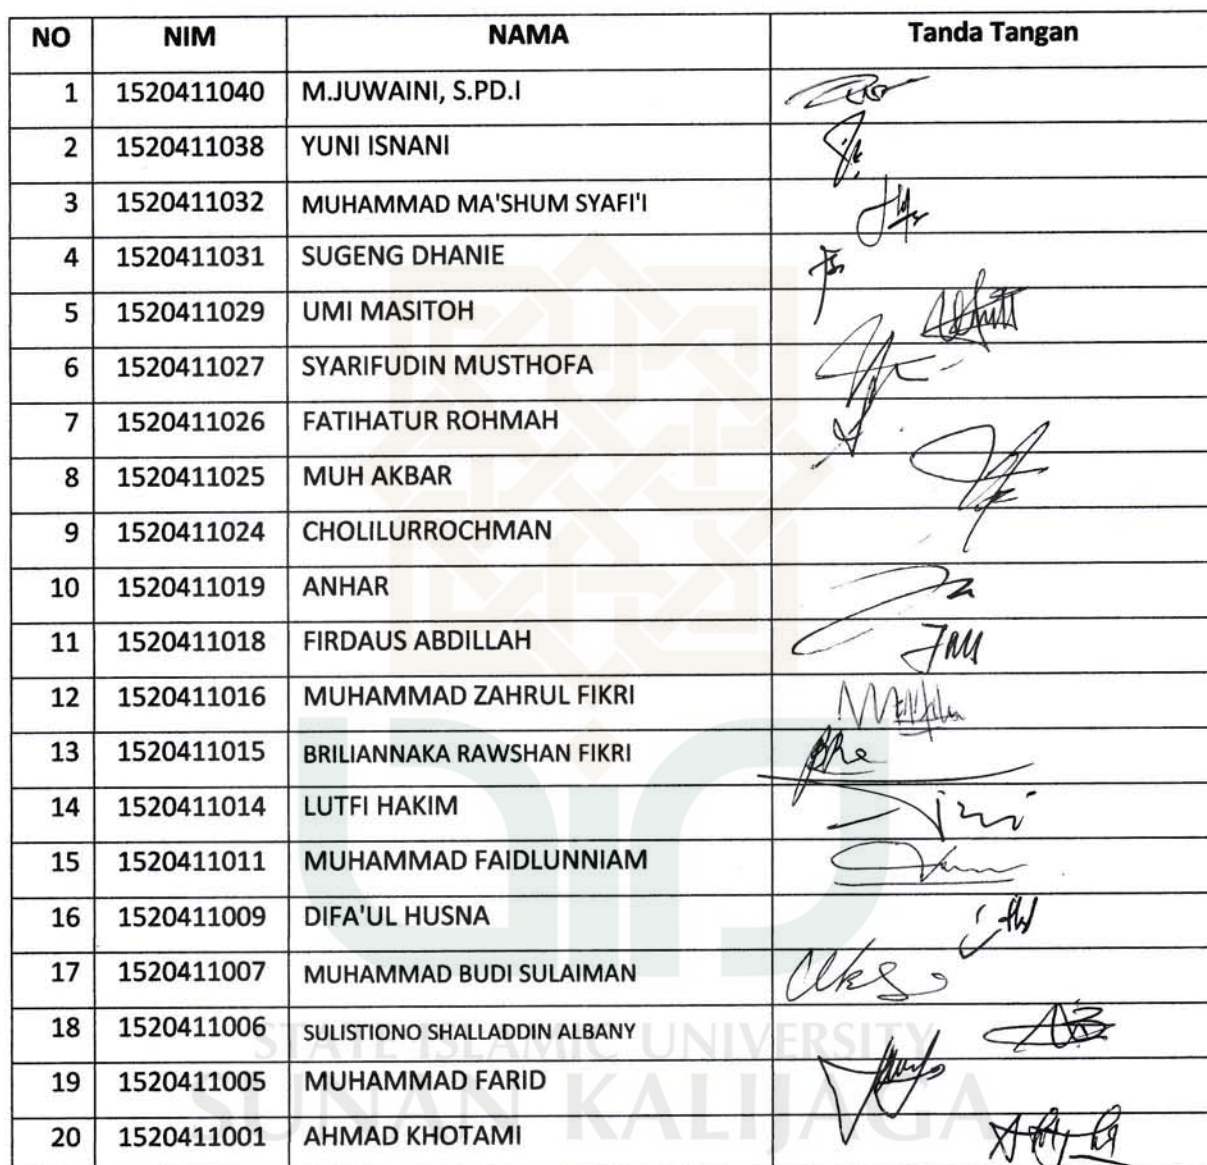 NO NIM NAMA Tanda Tangan
1 1520411040 M.JUWAINI, S.PD.I
2 1520411038 YUNI ISNANI
3 1520411032 MUHAMMAD MA'SHUM SYAFI'I
4 1520411031 SUGENG DHANIE
5 1520411029 UMI MASITOH
6 1520411027 SYARIFUDIN MUSTHOFA
7 1520411026 FATIHATUR ROHMAH
8 1520411025 MUH AKBAR
9 1520411024 CHOLILURROCHMAN
10 1520411019 ANHAR
11 1520411018 FIRDAUS ABDILLAH
12 1520411016 MUHAMMAD ZAHRUL FIKRI
13 1520411015 BRILIANNAKA RAWSHAN FIKRI
14 1520411014 LUTFI HAKIM
15 1520411011 MUHAMMAD FAIDLUNNIAM
16 1520411009 DIFA'UL HUSNA
17 1520411007 MUHAMMAD BUDI SULAIMAN
18 1520411006 SULISTIONO SHALLADDIN ALBANY
STATE ISLAMIC UNIVERSITY
19 1520411005 MUHAMMAD FARID
SUNAN KALIJAGA
20 1520411001 AHMAD KHOTAMI